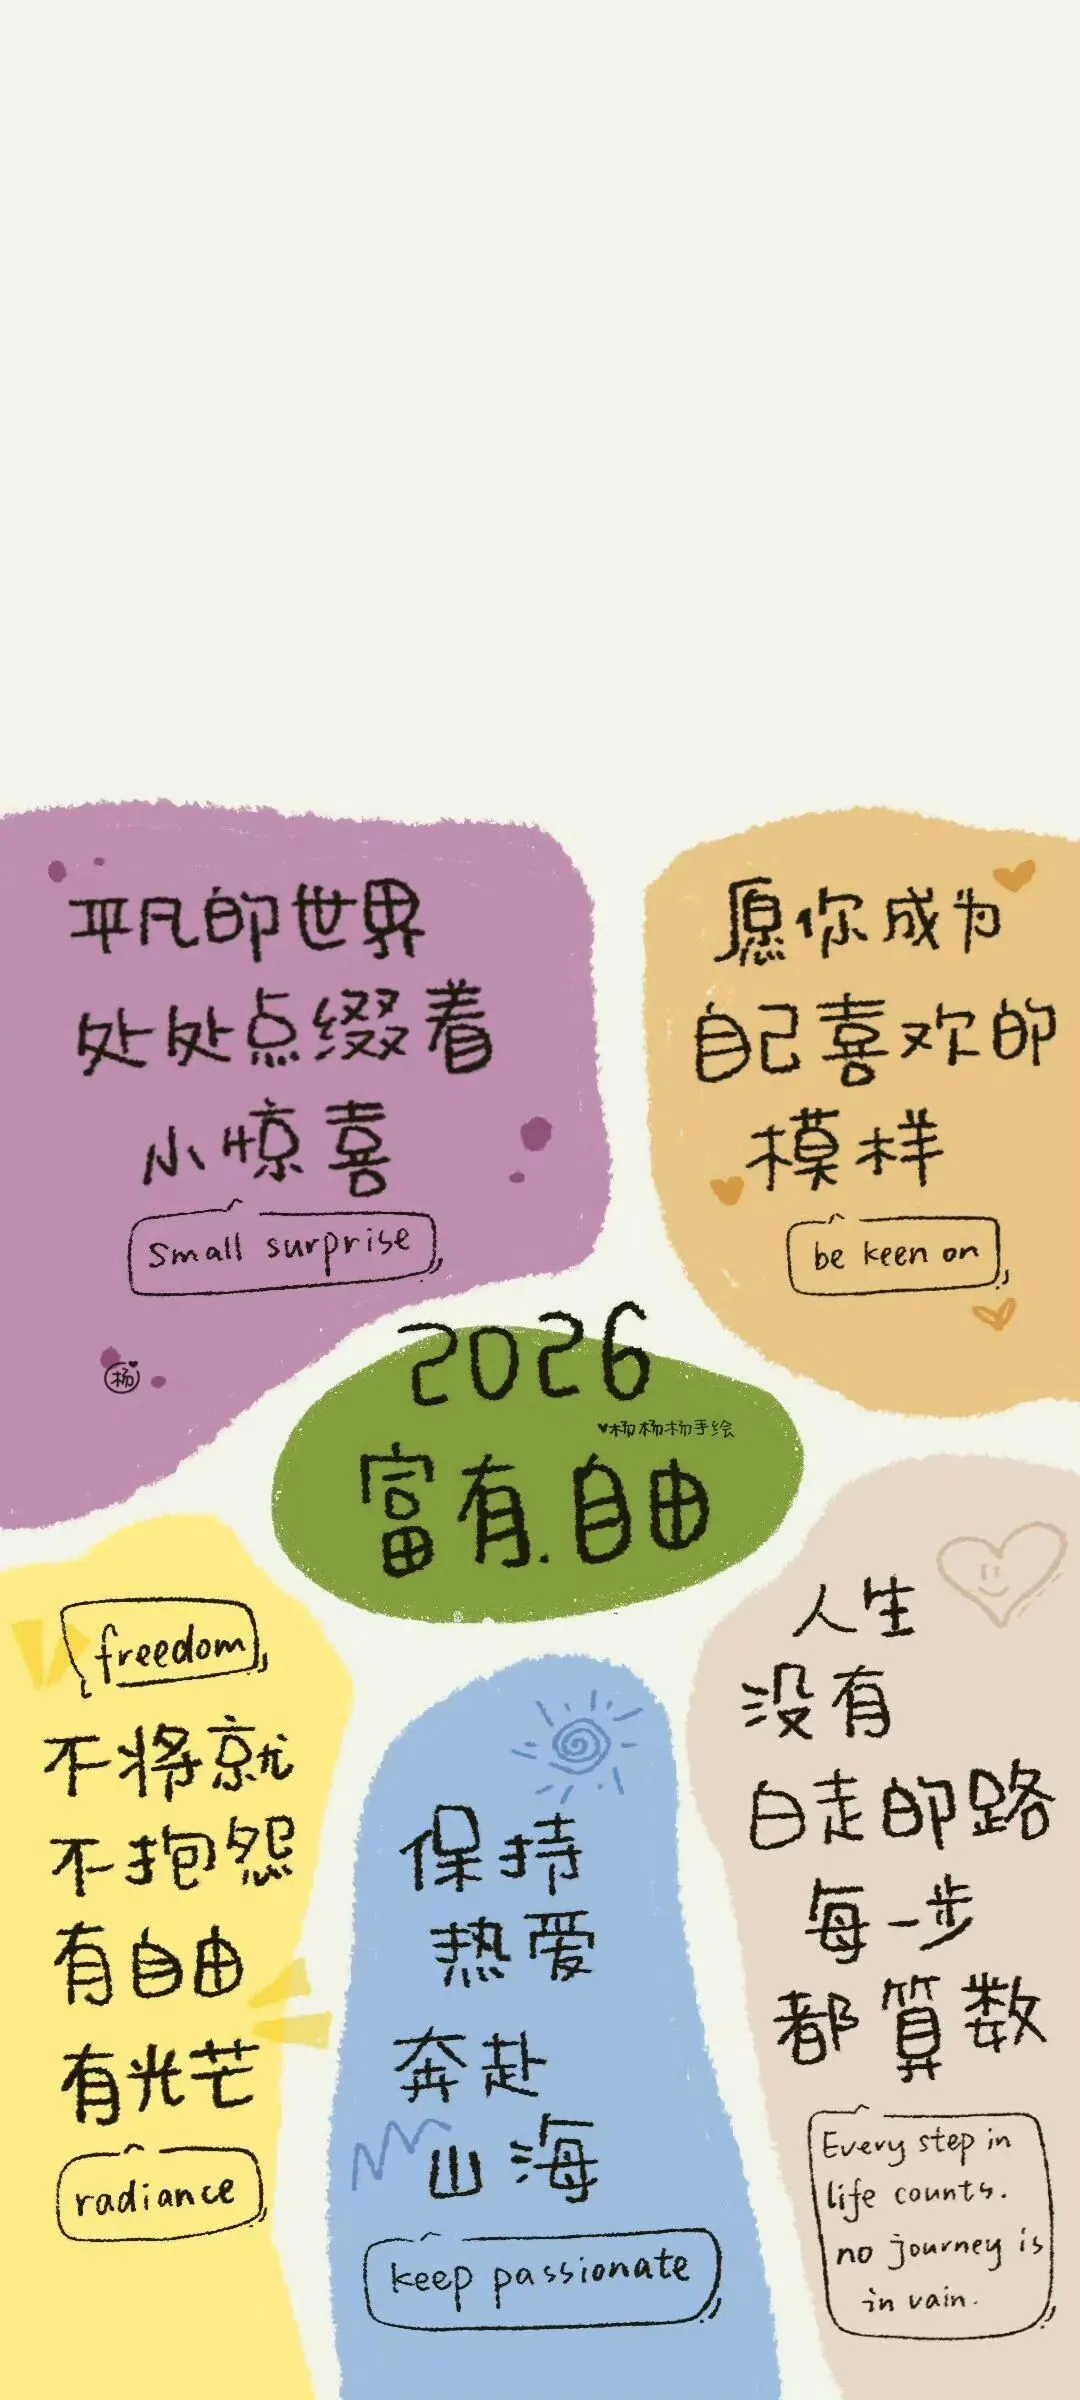 平凡的世界
处处点缀着
小惊喜
small surprise
杨
愿你成为
自己喜欢的
模样
be keen on
2026
♥杨杨杨手绘
富有.自由
freedom
不将就
不抱怨
有自由
有光芒
radiance
保持
热爱
奔赴
山海
keep passionate
人生
没有
白走的路
每一步
都算数
Every step in
life counts.
no journey is
in vain.